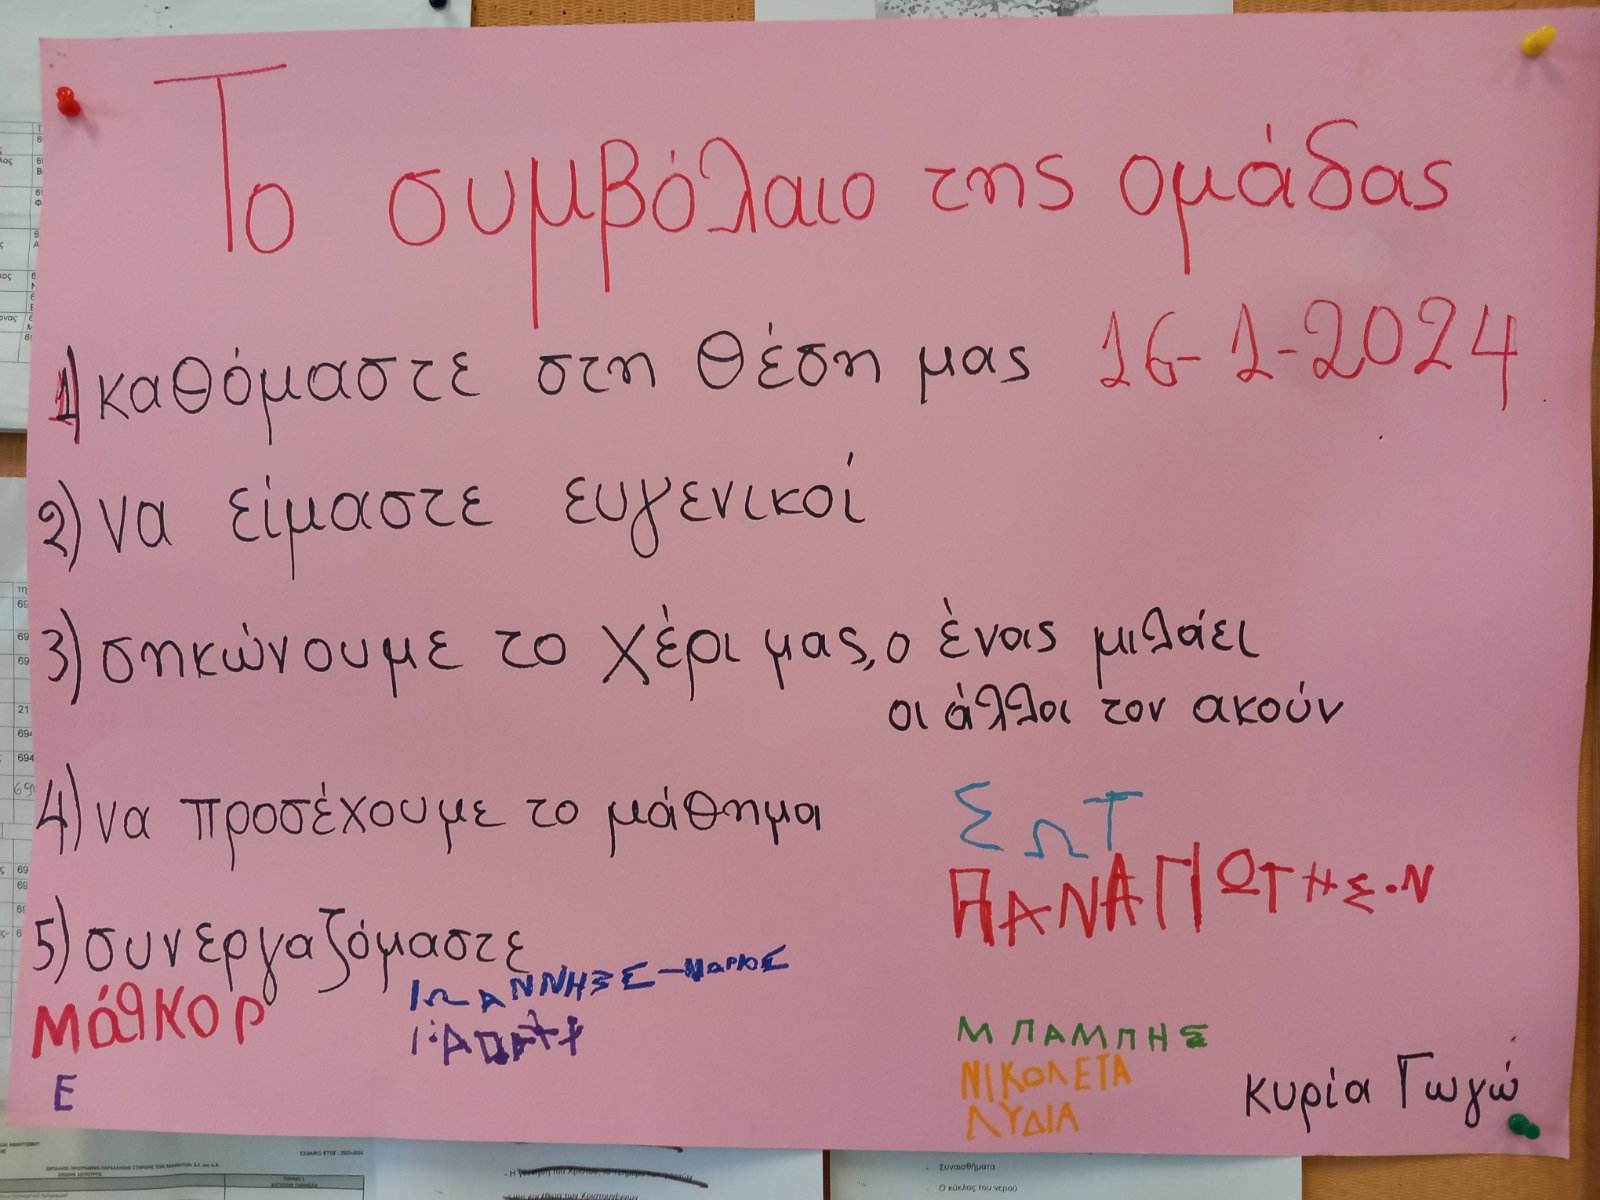 Το συμβόλαιο της ομάδας
16-1-2024
1) καθόμαστε στη θέση μας
2) να είμαστε ευγενικοί
3) σηκώνουμε το χέρι μας, ο ένας μιλάει
οι άλλοι τον ακούν
4) να προσέχουμε το μάθημα
5) συνεργαζόμαστε
ΣΩΤ
ΠΑΝΑΓΙΩΤΗΣ.Ν
Μάθκορ
Ε
ΜΠΑΜΠΗΣ
ΝΙΚΟΛΕΤΑ
ΛΥΔΙΑ
κυρία Γωγώ
Συναισθήματα
Ο κύκλος του νερού